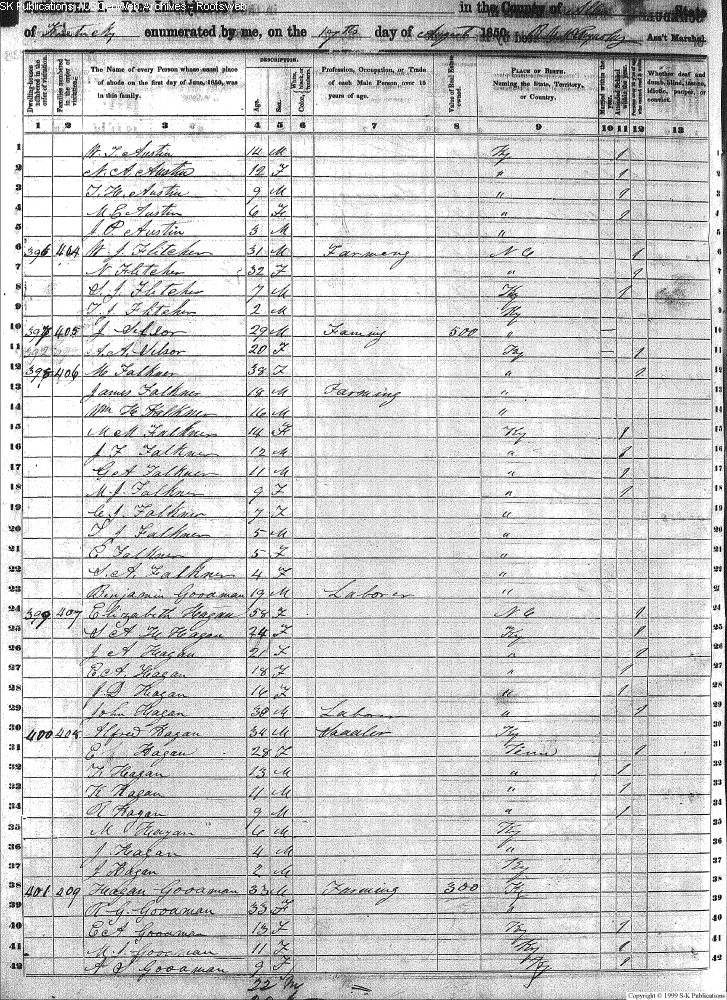 SK Publications / USGenWeb Archives - Rootsweb
in the County of State
of enumerated by me, on the 17th day of August 1850. Ass't Marshal.
Dwelling-houses numbered in the order of visitation.
Families numbered in the order of visitation.
The Name of every Person whose usual place of abode on the first day of June, 1850, was in this family.
DESCRIPTION.
Age.
Sex.
White, black, or mulatto.
Color,
Profession, Occupation, or Trade of each Male Person over 15 years of age.
Value of Real Estate owned.
PLACE OF BIRTH.
Naming the State, Territory, or Country.
Married within the year.
Attended School within the year.
Whether deaf and dumb, blind, insane, idiotic, pauper, or convict.
1 2 3 4 5 6 7 8 9 10 11 12 13
1 W. T. Austin 14 M Ky 1 1
2 N. A. Austin 12 F " 1 2
3 T. H. Austin 9 M " 1 3
4 M E Austin 6 F " 1 4
5 J. P. Austin 3 M " 5
6 396 404 W. J. Flitcher 31 M Farming N C 1 6
7 N Flitcher 32 F " 1 7
8 S. J. Fletcher 7 M Ky 1 8
9 T. J. Flitcher 2 M Ky 9
10 397 405 J 29 M Faming 500 " 10
11 A. A. 20 F Ky 1 11
12 398 406 M Falkner 38 F " 1 12
13 James Falkner 18 M Farming " 13
14 Wm H Falkner 16 M " 14
15 M. M. Falkner 14 F Ky 1 15
16 J. F Falkner 12 M " 1 16
17 A Falkner 11 M " 1 17
18 M. J. Falkner 9 F " 1 18
19 Falkner 7 F " 19
20 J Falkner 5 M " 20
21 E Falkner 5 F " 21
22 S. A. Falkner 4 F " 22
23 Benjamin Gooaman 19 M Laborer " 23
24 399 407 Elizabeth Hagan 58 F N C 1 24
25 S A H Hagan 24 F Ky 1 25
26 J A Hagan 21 F " 1 26
27 E. A. Hagan 18 F " 1 27
28 J. D Hagan 16 F " 1 28
29 John Hagan 30 M Labour " 1 29
30 400 408 Alfred Hagan 34 M Saddler Ky 30
31 E Hagan 28 F Tenn 1 31
32 Hagan 13 M " 1 32
33 Hagan 11 M " 1 33
34 R Hagan 9 M " 1 34
35 M Hagan 6 M Ky 35
36 J Hagan 4 M " 36
37 J Hagan 2 M Ky 37
38 401 409 Hagan Gooaman 33 M Farming 300 Ky 38
39 R G. Gooaman 33 F " 39
40 E A Gooaman 13 F Ky 1 40
41 M. Gooaman 11 F Ky 1 41
42 A Gooaman 9 F Ky 42
22 M
Copyright © 1999 S-K Publications